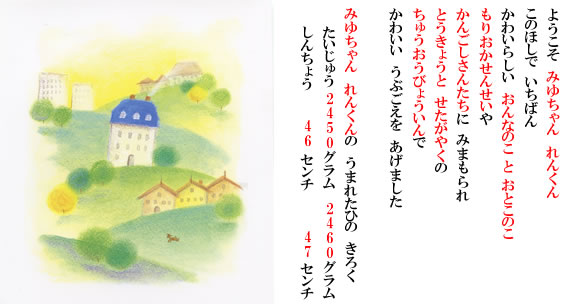 ようこそ みゆちゃん れんくん
このほしで いちばん
かわいらしい おんなのこ と おとこのこ
もりおかせんせいや
かんごしさんたちに みまもられ
とうきょうと せたがやくの
ちゅうおうびょういんで
かわいい うぶごえを あげました
みゆちゃん れんくんの うまれたひの きろく
たいじゅう 2450グラム 2460グラム
しんちょう 46センチ 47センチ